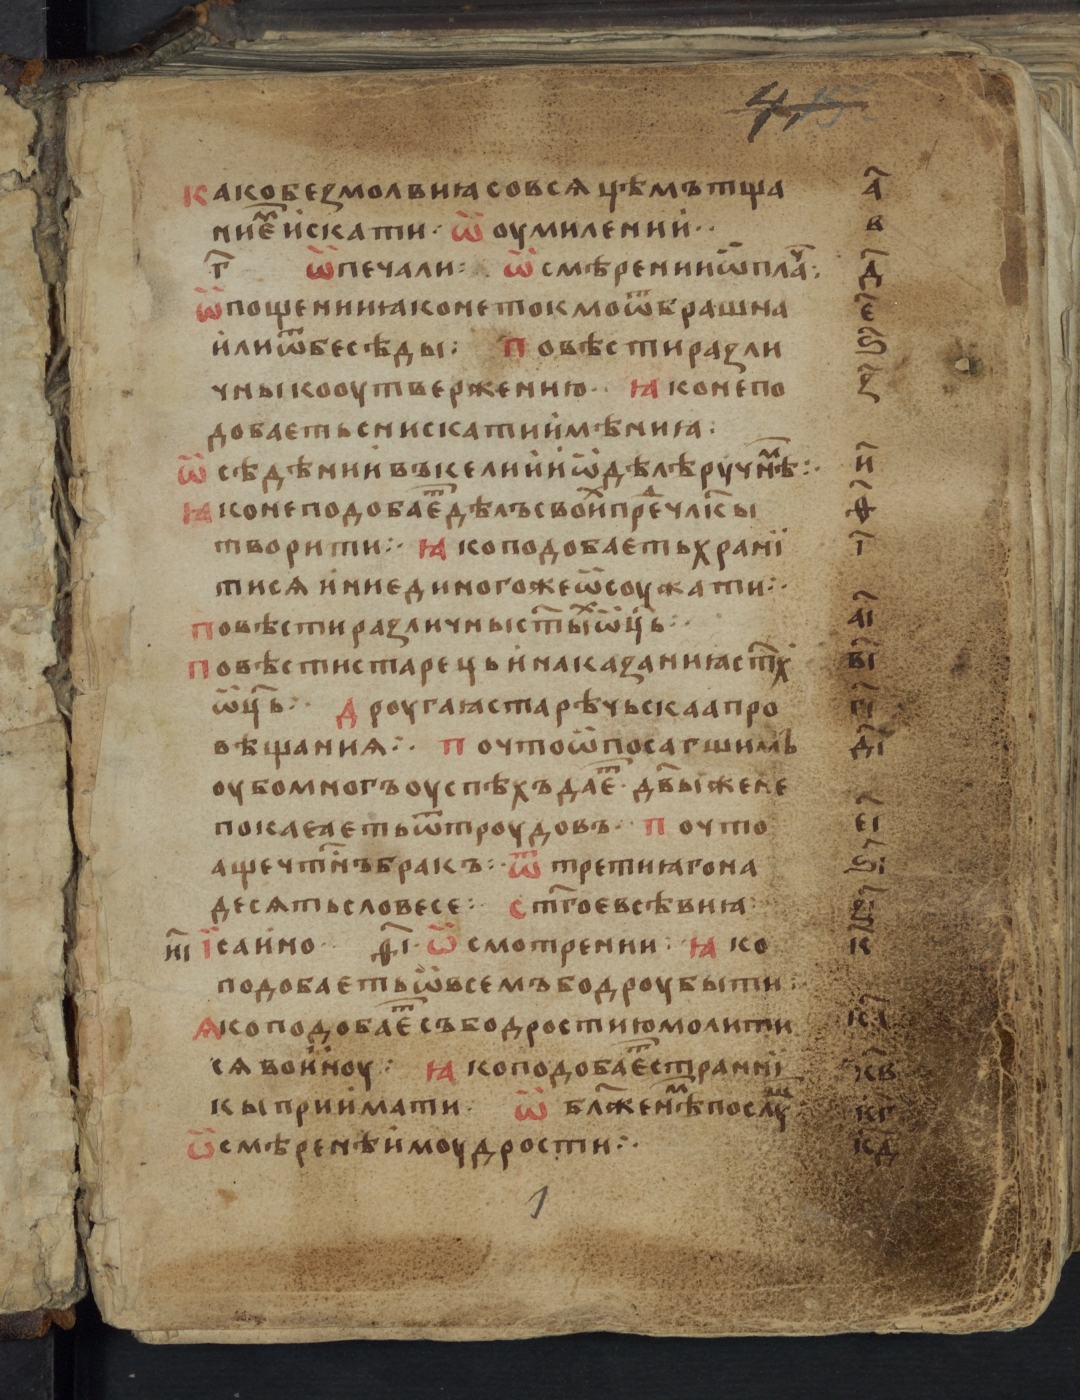 како безмолвиꙗ со всѧцѣмъ тща а҃
ниеⷨ искати· ѿ оумилении·· в
г҃ ѿ печали: ѿ смѣрении ѿ плаⷱ: д҃
ѿ пощении ꙗко не токмо ѿ брашна е҃
или ѿ бесѣды: Повѣсти разли ѕ҃
чны ко оутвержению·· ꙗко не по з҃
добаеть снискати имѣниꙗ:
ѿ сѣдѣнии въ келии и ѿ дѣлѣ ручнⷨѣ:· и҃
ꙗко не подобаеⷮ дѣлъ свои преⷣ чл҃кы ѳ҃
творити:· ꙗко подобаеть храни і҃
тисѧ и ни единого же ѿсоужати:·
Повѣсти различны ст҃ыⷯ ѿц҃ь:· а҃і
Повѣсти старець и наказаниꙗ ст҃хⷯ в҃і
ѿц҃ь:· Другаꙗ старѣчьскаа про г҃і
вѣщаниѧ:· Почто ѿ посагшимь д҃і
оубо многъ оуспѣхъ даеⷮ· дв҃ы же не
поклеаеть ѿ троудовъ· Почто е҃і
аще чт҃нъ бракъ:· ѿ третиꙗго на ѕ҃і
десѧть словесе: Ст҃го евсѣвиꙗ з҃і
и҃і Їсаино ѳ҃і ѿ смотрении: ꙗко к
подобаеть ѿ всемъ бодроу быти:
Ѧко подобаеⷮ съ бодростию молити к҃а
сѧ воиноу: ꙗко подобаеⷮ странни к҃в
кы приимати ѿ бл҃женⷨѣ послуⷲ к҃г
ѿ смѣренѣи моудрости:· к҃д
1